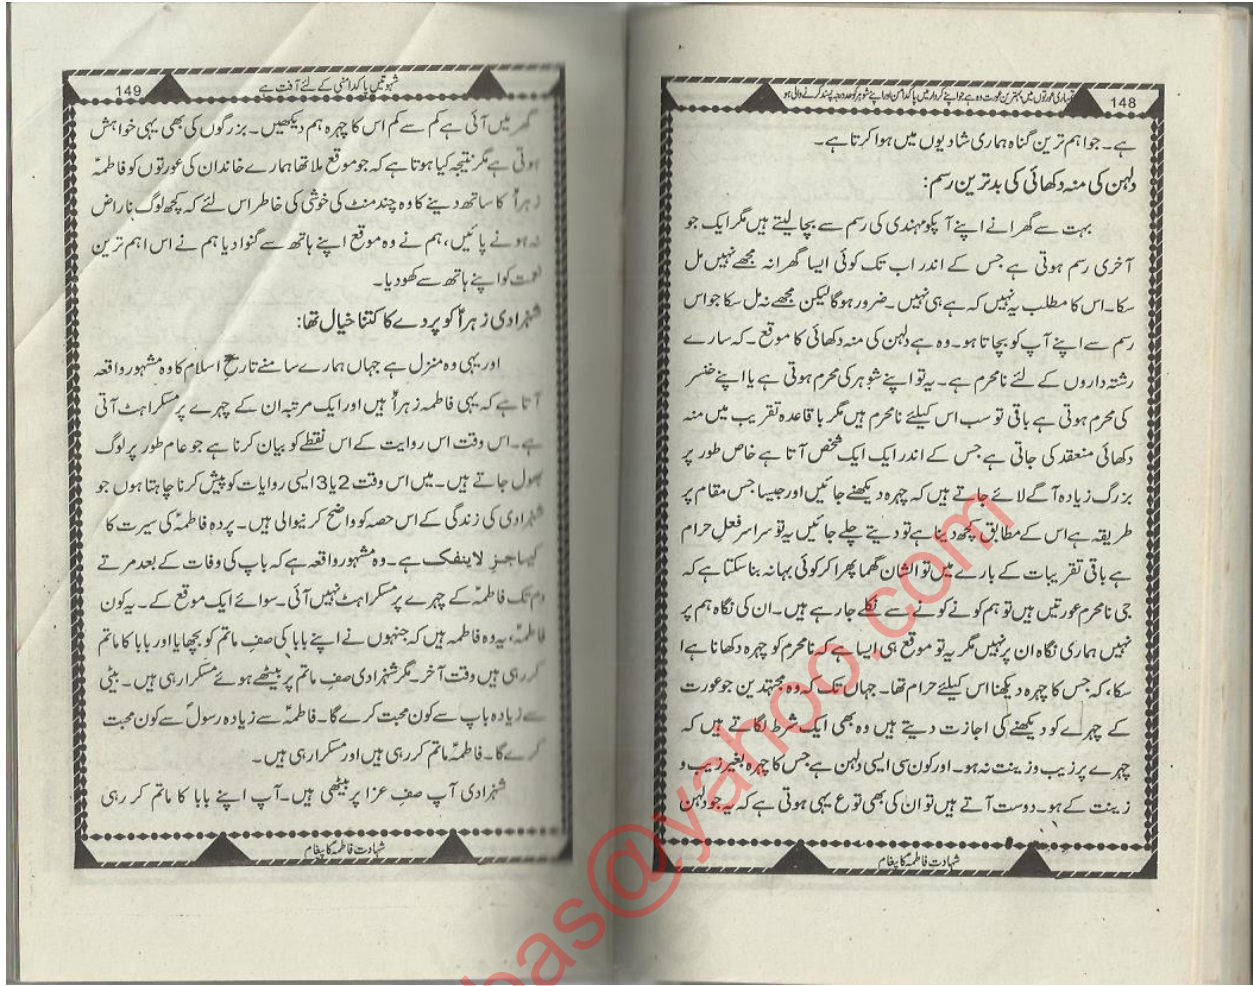 تمہاری عورتوں میں بہترین عورت وہ ہے جو اپنے کردار میں پاکدامن اور اپنے شوہر کو حد درجہ پسند کرنے والی ہو
148
ہے۔ جو اہم ترین گناہ ہماری شادیوں میں ہوا کرتا ہے۔
دلہن کی منہ دکھائی کی بدترین رسم:
بہت سے گھرانے اپنے آپکو مہندی کی رسم سے بچا لیتے ہیں مگر ایک جو
آخری رسم ہوتی ہے جس کے اندر اب تک کوئی ایسا گھرانہ مجھے نہیں مل
سکا۔ اس کا مطلب یہ نہیں کہ ہے ہی نہیں۔ ضرور ہوگا لیکن مجھے نہ مل سکا جو اس
رسم سے اپنے آپ کو بچاتا ہو۔ وہ ہے دلہن کی منہ دکھائی کا موقع۔ کہ سارے
رشتہ داروں کے لئے نامحرم ہے۔ یہ تو اپنے شوہر کی محرم ہوتی ہے یا اپنے خسر
کی محرم ہوتی ہے باقی تو سب اس کیلئے نامحرم ہیں مگر باقاعدہ تقریب میں منہ
دکھائی منعقد کی جاتی ہے جس کے اندر ایک ایک شخص آتا ہے خاص طور پر
بزرگ زیادہ آگے لائے جاتے ہیں کہ چہرہ دیکھنے جائیں اور جیسا جس مقام پر
طریقہ ہے اس کے مطابق کچھ دینا ہے تو دیتے چلے جائیں یہ تو سراسر فعل حرام
ہے باقی تقریبات کے بارے میں تو انسان گھما پھرا کر کوئی بہانہ بنا سکتا ہے کہ
جی نامحرم عورتیں ہیں تو ہم کونے کونے سے نکلے جا رہے ہیں۔ ان کی نگاہ ہم پر
نہیں ہماری نگاہ ان پر نہیں مگر یہ تو موقع ہی ایسا ہے کہ نامحرم کو چہرہ دکھانا ہے ا
سکا، کہ جس کا چہرہ دیکھنا اس کیلئے حرام تھا۔ جہاں تک کہ وہ مجتہدین جو عورت
کے چہرے کو دیکھنے کی اجازت دیتے ہیں وہ بھی ایک شرط لگاتے ہیں کہ
چہرے پر زیب و زینت نہ ہو۔ اور کون سی ایسی دلہن ہے جس کا چہرہ بغیر زیب و
زینت کے ہو۔ دوست آتے ہیں تو ان کی بھی توقع یہی ہوتی ہے کہ یہ جو دلہن
شہادت فاطمہؑ کا پیغام
شہوتیں پاکدامنی کے لئے آفت ہے
149
گھر میں آئی ہے کم سے کم اس کا چہرہ ہم دیکھیں۔ بزرگوں کی بھی یہی خواہش
ہوتی ہے مگر نتیجہ کیا ہوتا ہے کہ جو موقع ملا تھا ہمارے خاندان کی عورتوں کو فاطمہ
زہراؑ کا ساتھ دینے کا وہ چند منٹ کی خوشی کی خاطر اس لئے کہ کچھ لوگ ناراض
نہ ہونے پائیں، ہم نے وہ موقع اپنے ہاتھ سے گنوا دیا ہم نے اس اہم ترین
نعمت کو اپنے ہاتھ سے کھو دیا۔
شہزادی زہراؑ کو پردے کا کتنا خیال تھا:
اور یہی وہ منزل ہے جہاں ہمارے سامنے تاریخ اسلام کا وہ مشہور واقعہ
آتا ہے کہ یہی فاطمہ زہراؑ ہیں اور ایک مرتبہ ان کے چہرے پر مسکراہٹ آتی
ہے۔ اس وقت اس روایت کے اس نقطے کو بیان کرنا ہے جو عام طور پر لوگ
بھول جاتے ہیں۔ میں اس وقت 2 یا 3 ایسی روایات کو پیش کرنا چاہتا ہوں جو
شہزادی کی زندگی کے اس حصہ کو واضح کرنیوالی ہیں۔ پردہ فاطمہؑ کی سیرت کا
کیسا جز لاینفک ہے۔ وہ مشہور واقعہ ہے کہ باپ کی وفات کے بعد مرتے
دم تک فاطمہؑ کے چہرے پر مسکراہٹ نہیں آئی۔ سوائے ایک موقع کے۔ یہ کون
فاطمہؑ، یہ وہ فاطمہ ہیں کہ جنہوں نے اپنے بابا کی صفِ ماتم کو بچھایا اور بابا کا ماتم
کر رہی ہیں وقت آخر۔ مگر شہزادی صفِ ماتم پر بیٹھے ہوئے مسکرا رہی ہیں۔ بیٹی
سے زیادہ باپ سے کون محبت کرے گا۔ فاطمہؑ سے زیادہ رسولؐ سے کون محبت
کرے گا۔ فاطمہؑ ماتم کر رہی ہیں اور مسکرا رہی ہیں۔
شہزادی آپ صفِ عزا پر بیٹھی ہیں۔ آپ اپنے بابا کا ماتم کر رہی
شہادت فاطمہؑ کا پیغام
bas@yahoo.com